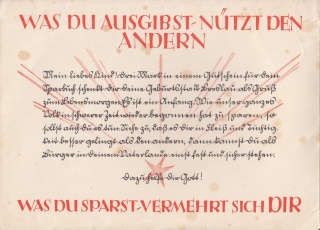 WAS DU AUSGIBST-NÜTZT DEN
ANDERN
Mein liebes Kind! Drei Mark in einem Gutschein für dein
Sparbuch schenkt dir deine Geburtsstadt Breslau als Gruß
zum Lebensmorgen. Es ist ein Anfang. Wie unser ganzes
Volk in schwerer Zeit wieder begonnen hat zu sparen, so
sollst auch du es tun. Siehe zu, daß es dir in Fleiß und Tüchtig,
keit besser gelingt als den andern, dann kannst du als
Bürger in deinem Vaterlande einst fest und sicher stehen.
Dazu helfe dir Gott!
WAS DU SPARST-VERMEHRT SICH DIR